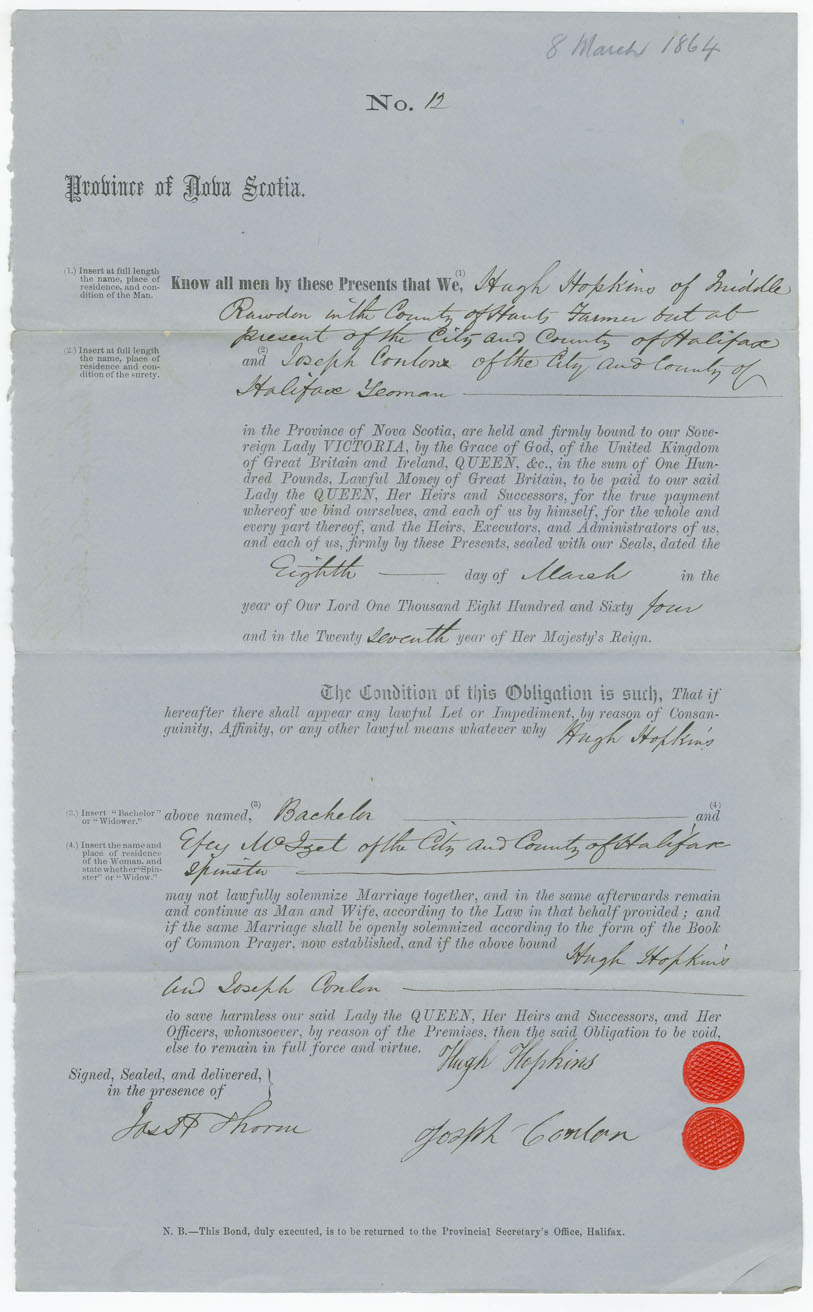 8 March 1864
No. 12
Province of Nova Scotia.
(1.) Insert at full length
the name, place of
residence, and con-
dition of the Man.
Know all men by these Presents that We, (1) Hugh Hopkins of Middle
Rawdon in the County of Hants Farmer but at
present of the City and County of Halifax
(2.) Insert at full length
the name, place of
residence and con-
dition of the surety.
and (2) Joseph Conlon of the City and County of
Halifax Yeoman
in the Province of Nova Scotia, are held and firmly bound to our Sove-
reign Lady VICTORIA, by the Grace of God, of the United Kingdom
of Great Britain and Ireland, QUEEN, &c., in the sum of One Hun-
dred Pounds, Lawful Money of Great Britain, to be paid to our said
Lady the QUEEN, Her Heirs and Successors, for the true payment
whereof we bind ourselves, and each of us by himself, for the whole and
every part thereof, and the Heirs, Executors, and Administrators of us,
and each of us, firmly by these Presents, sealed with our Seals, dated the
Eighth day of March in the
year of Our Lord One Thousand Eight Hundred and Sixty four
and in the Twenty seventh year of Her Majesty's Reign.
The Condition of this Obligation is such, That if
hereafter there shall appear any lawful Let or Impediment, by reason of Consan-
guinity, Affinity, or any other lawful means whatever why Hugh Hopkins
(3.) Insert "Bachelor"
or "Widower."
above named, (3) Bachelor and (4)
(4.) Insert the name and
place of residence
of the Woman, and
state whether "Spin-
ster" or "Widow."
Efey of the City and County of Halifax
Spinster
may not lawfully solemnize Marriage together, and in the same afterwards remain
and continue as Man and Wife, according to the Law in that behalf provided; and
if the same Marriage shall be openly solemnized according to the form of the Book
of Common Prayer, now established, and if the above bound Hugh Hopkins
and Joseph Conlon
do save harmless our said Lady the QUEEN, Her Heirs and Successors, and Her
Officers, whomsoever, by reason of the Premises, then the said Obligation to be void,
else to remain in full force and virtue. Hugh Hopkins
Signed, Sealed, and delivered,
in the presence of
Thorne Joseph Conlon
N. B.—This Bond, duly executed, is to be returned to the Provincial Secretary's Office, Halifax.